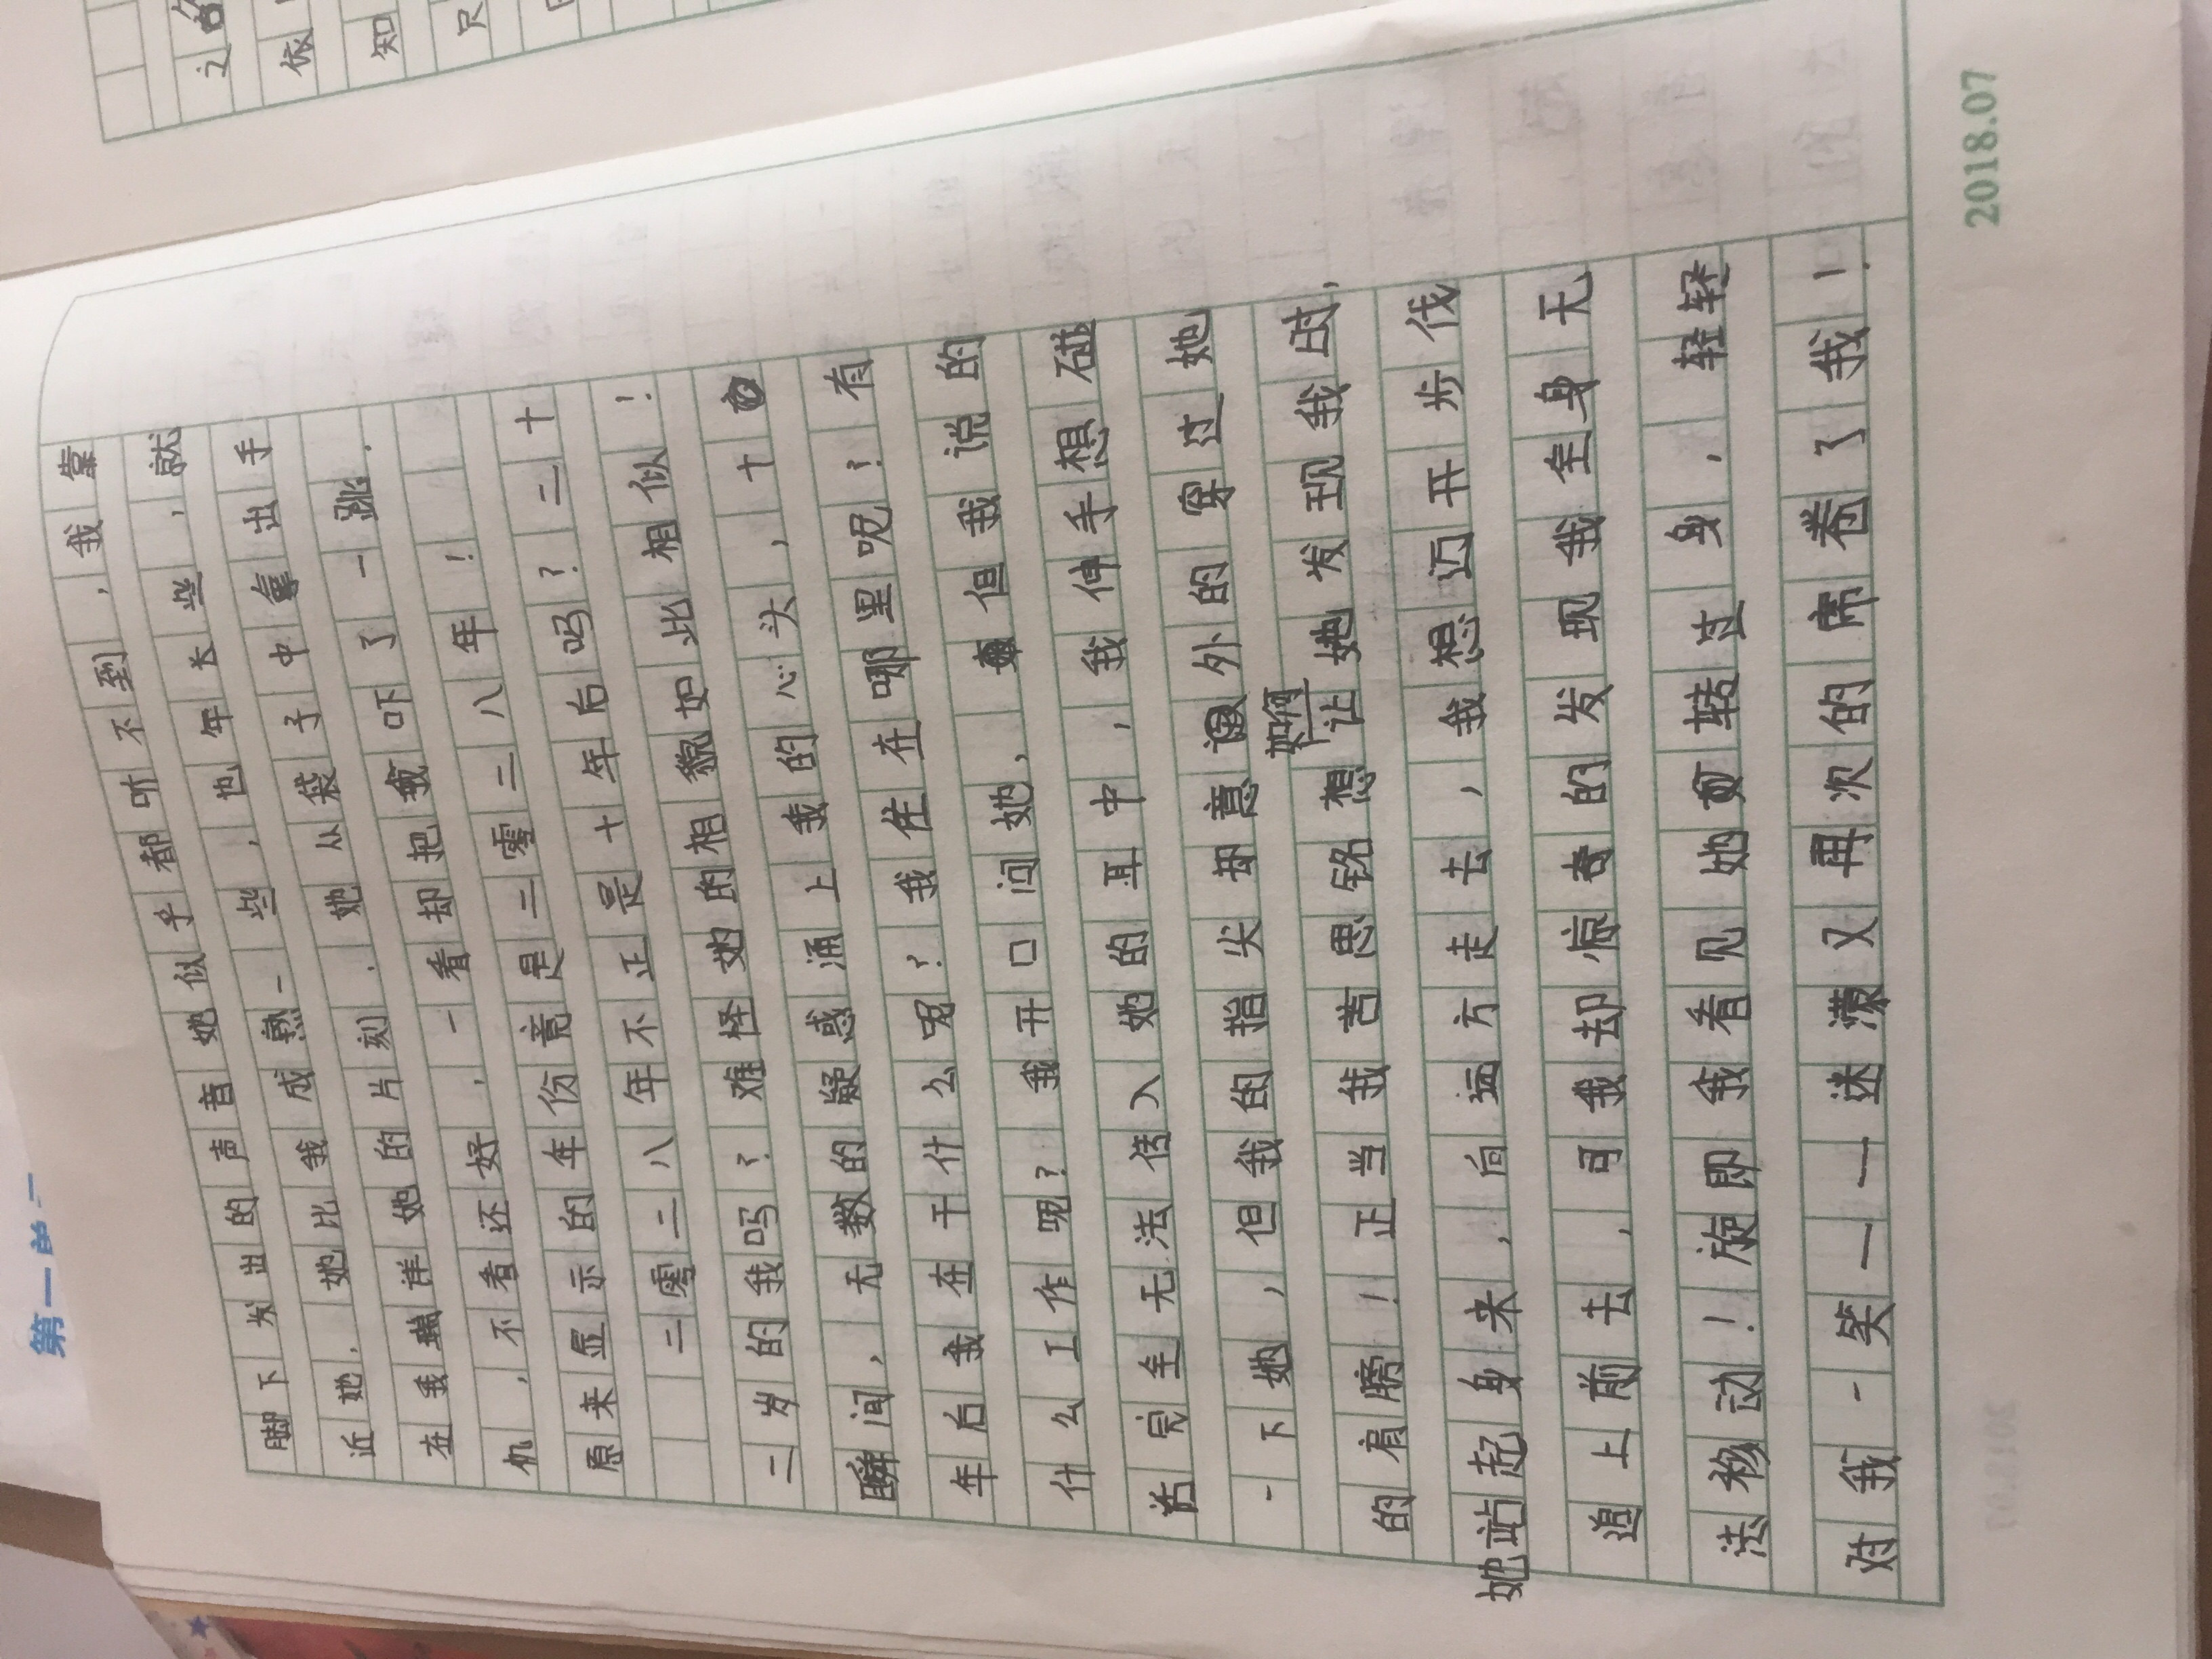 之
依
知
只
第一单
脚下发出的声音她似乎都听不到,我靠
近她,她比我成熟一些,也年长些,就
在我端详她的片刻,她从袋子中拿出手
机,不看还好,一看却把我吓了一跳.
原来显示的年份竟是二零二八年!
二零二八年不正是十年后吗?二十
二岁的我吗?难怪她的相貌如此相似!
瞬间,无数的疑惑涌上我的心头,十
年后我在干什么呢?我住在哪里呢?有
什么工作呢?我开口问她,但我说的
话完全无法传入她的耳中,我伸手想碰
一下她,但我的指尖却意外的穿过她
的肩膀!正当我苦思铭想如何让她发现我时,
她站起身来,向远方走去,我想迈开步伐
追上前去,可我却惊奇的发现我全身无
法移动!旋即我看见她转过身,轻轻
对我一笑——迷濛又再次的席卷了我!
2018.07